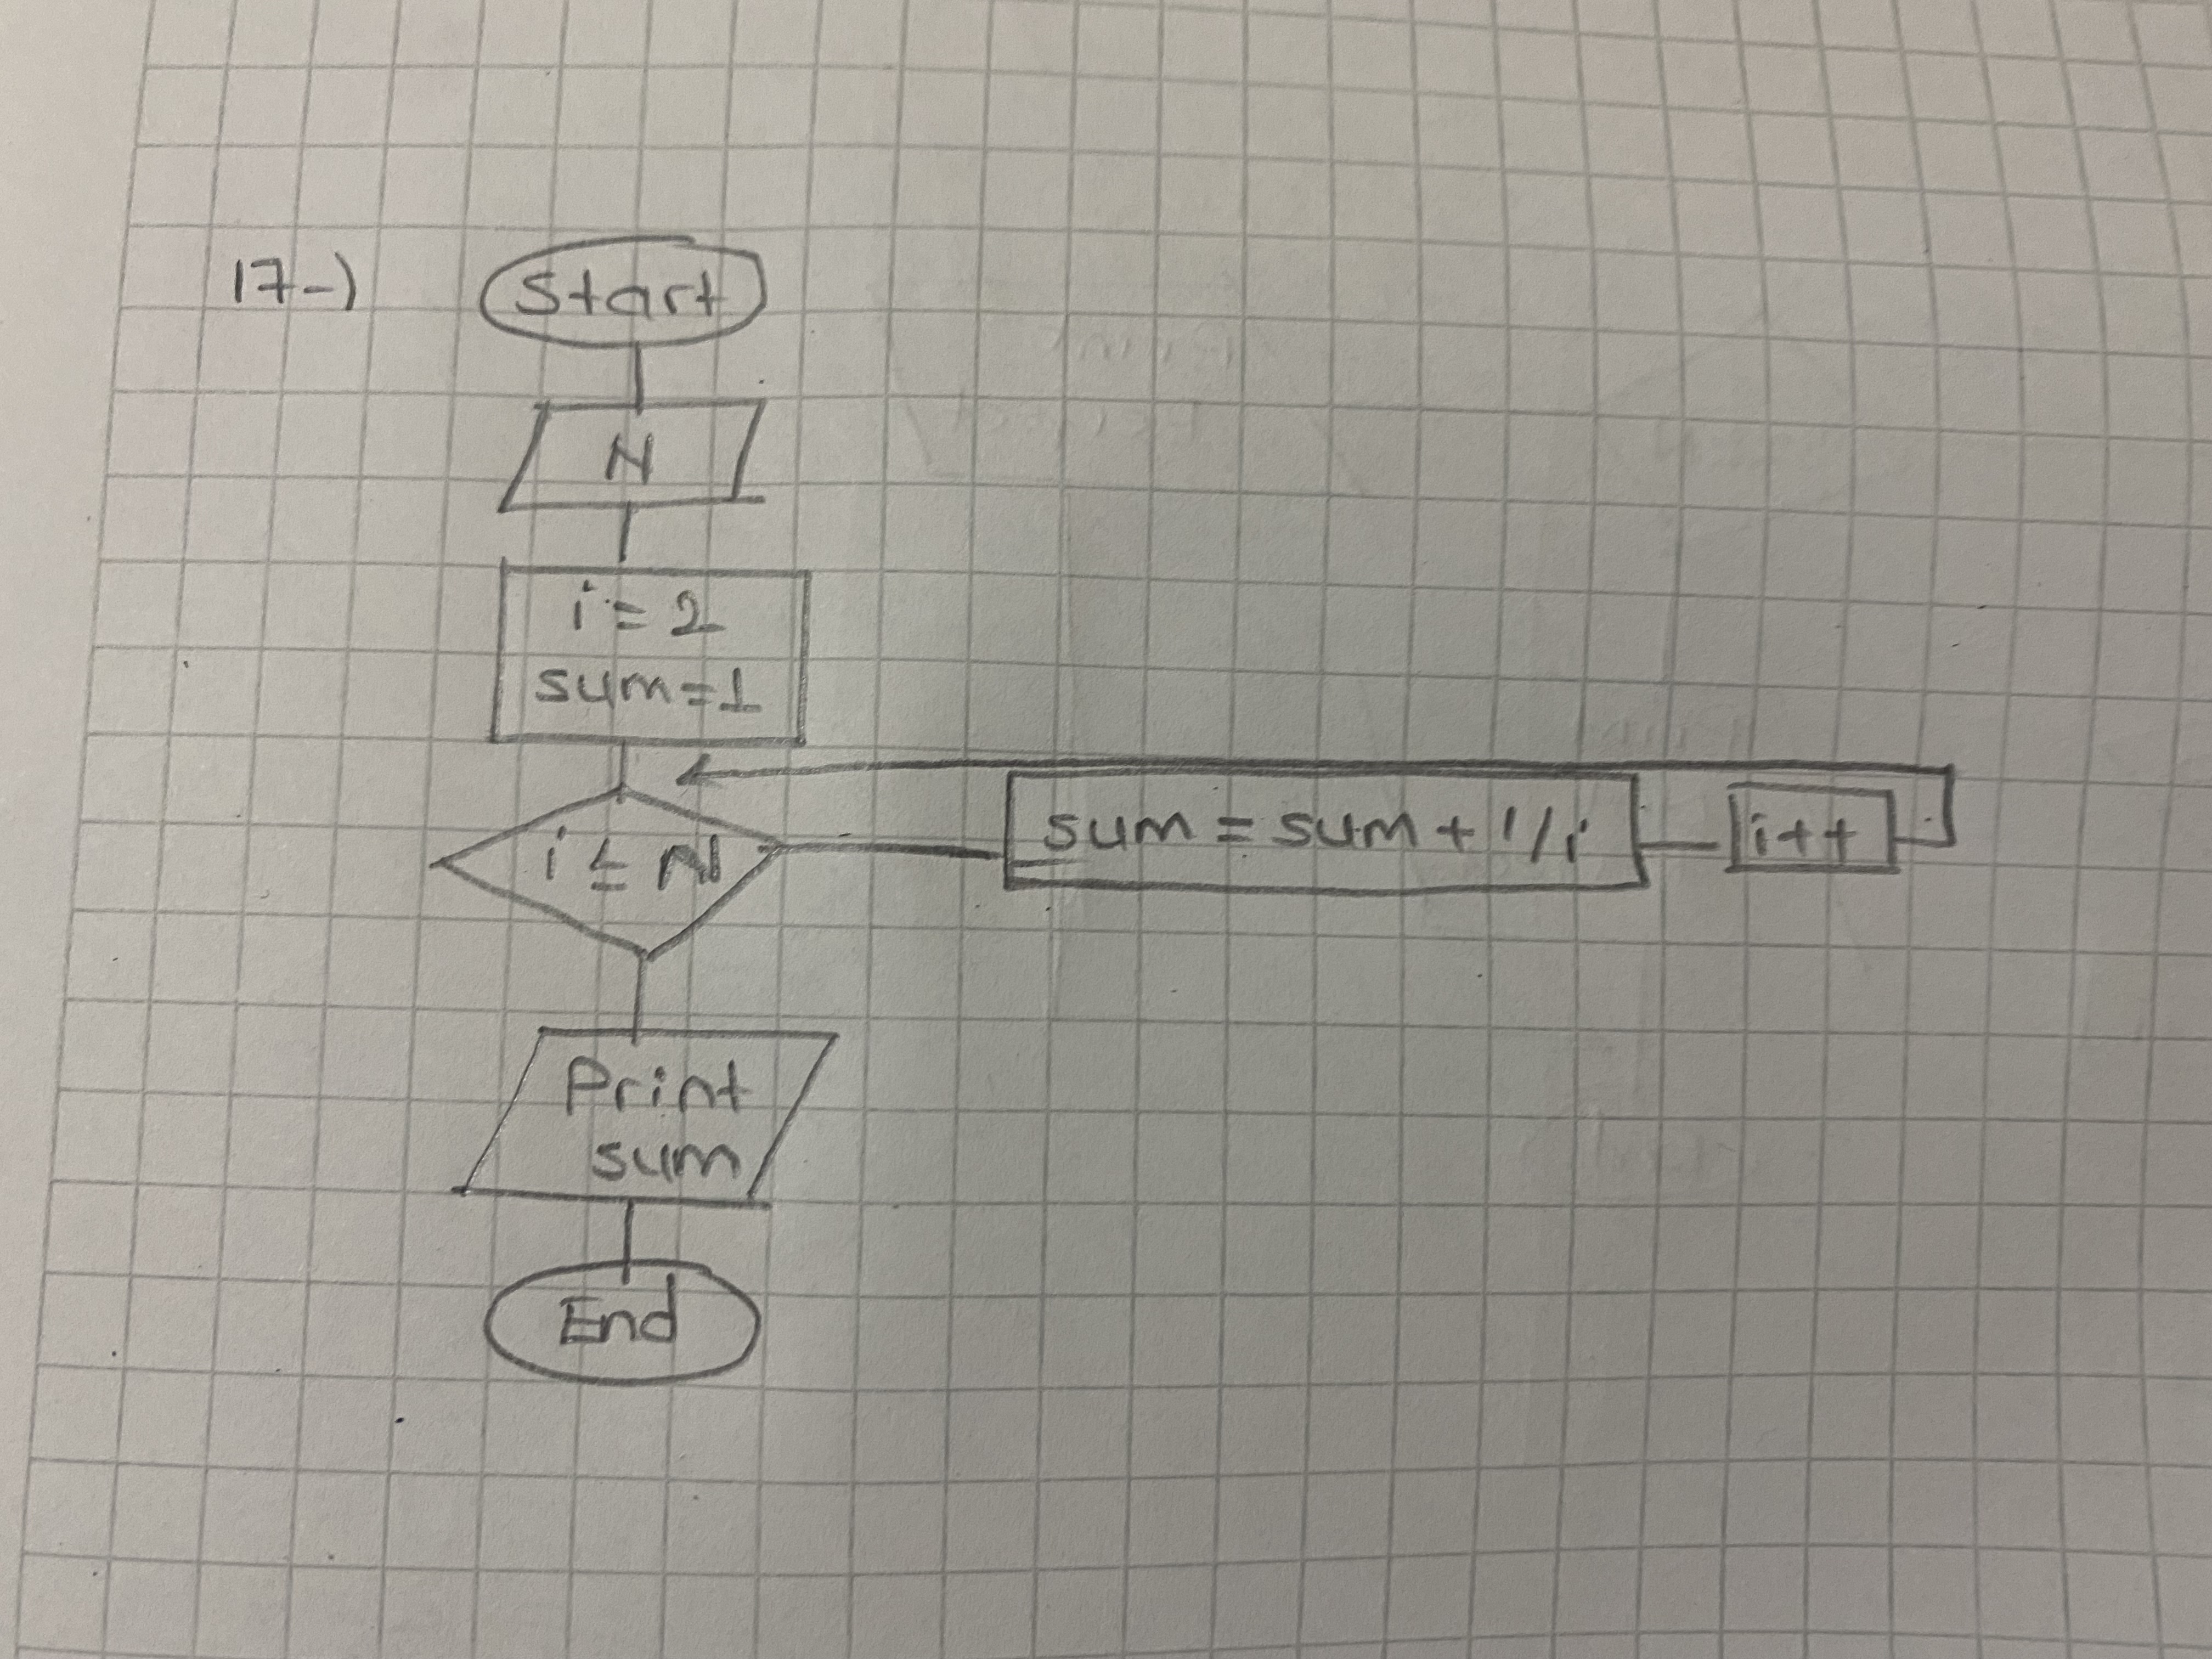 17-)
Start
N
i = 2
sum = 1
i ≤ N
sum = sum + 1/i
i++
Print
sum
End